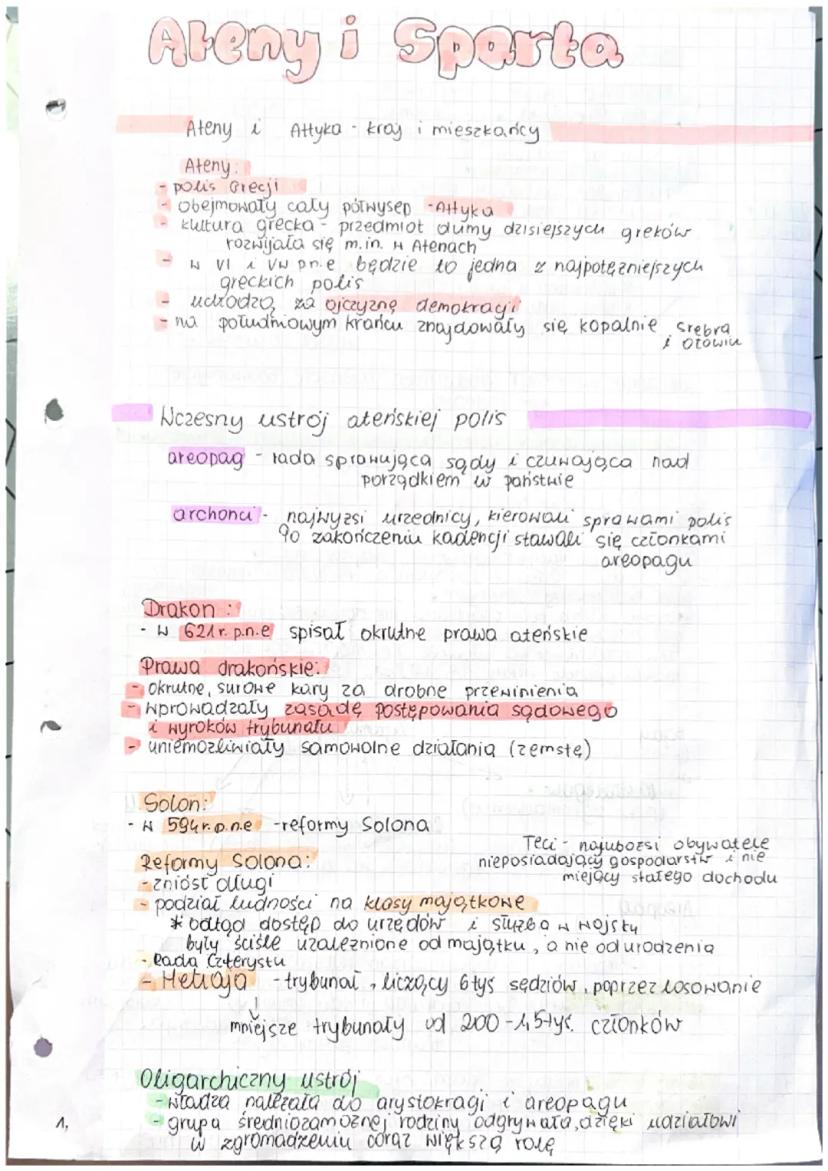 Ateny i Sparta
Ateny i Attyka - kraj i mieszkańcy
Ateny:
- polis Grecji
- obejmowały cały półwysep - Attyka
- kultura grecka - przedmiot dumy dzisiejszych greków
rozwijała się m.in. w Atenach
- w VI i V w p.n.e będzie to jedna z najpotężniejszych
greckich polis
- uchodzą za ojczyznę demokracji
- na południowym krańcu znajdowały się kopalnie srebra
i ołowiu
Wczesny ustrój ateńskiej polis
areopag - rada sprawująca sądy i czuwająca nad
porządkiem w państwie
archonci - najwyżsi urzednicy, kierowali sprawami polis
Po zakończeniu kadencji stawali się członkami
areopagu
Drakon:
- w 621 r. p.n.e spisał okrutne prawa ateńskie
Prawa drakońskie:
- okrutne, surowe kary za drobne przewinienia
- wprowadzały zasadę postępowania sądowego
i wyroków trybunału
- uniemożliwiały samowolne działania (zemstę)
Solon:
- w 594 r. p.n.e - reformy Solona
Teci - najubożsi obywatele
nieposiadający gospodarstw i nie
mający stałego dochodu
Reformy Solona:
- zniósł długi
- podział ludności na klasy majątkowe
* odtąd dostęp do urzędów i służba w wojsku
były ściśle uzależnione od majątku, a nie od urodzenia
- Rada Czterystu
- Heliaja - trybunał, liczący 6 tyś sędziów, poprzez losowanie
mniejsze trybunały od 200 - 1,5 tyś. członków
Oligarchiczny ustrój
- władza należała do arystokracji i areopagu
- grupa średniozamożnej rodziny odgrywała, dzięki udziałowi
w zgromadzeniu coraz większą rolę
1.